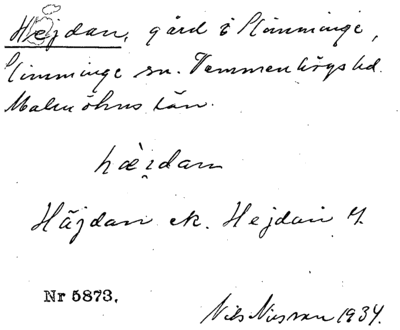 Hejdan, gård i Slimminge,
Slimminge sn. Vemmenhögs hd.
Malmöhus län.
hæi̯dan
Häjdan ek. Hejdan
Nr 5873.
Nils Nilsson 1934.